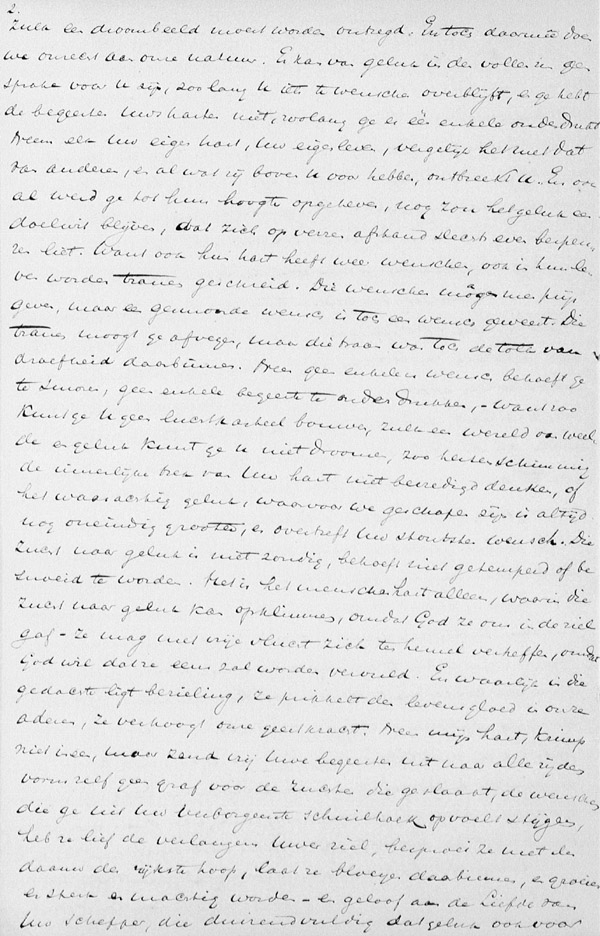 2.
Zulk een droombeeld moest worden ontzegd. En toch daarmee doen
we onrecht aan onze natuur. Er kan van geluk in den vollen zin geen
sprake voor u zijn, zoolang u iets te wenschen overblijft, en ge hebt
de begeerten uws harten niet, zoolang ge er één enkele onderdrukt
Neem elk uw eigen hart, uw eigen leven, vergelijk het met dat
van anderen, en al wat zij boven u voor hebben, ontbreekt u. En ook
al werd ge tot hun hoogte opgeheven, nog zou het geluk een
doelwit blijven, dat zich op verren afstand slechts even bespeu-
ren liet. Want ook hun hart heeft weer wenschen, ook in hun le-
ven worden tranen geschreid. Die wenschen mögen ze prijs
geven, maar een gesmoorde wensch is toch een wensch geweest. Die
tranen moogt ge afvegen, maar die traan was toch de tolk van
droefheid daarbinnen. Neen geen enkelen wensch behoeft ge
te smoren, geen enkele begeerte te onderdrukken, - want zoo
kunt ge u geen luchtkasteel bouwen, zulk een wereld van weel-
de en geluk kunt ge u niet droomen, zoo hersenschimmig
de innerlijke trek van uw hart niet bevredigd denken, of
het waarachtig geluk, waarvoor we geschapen zijn is altijd
nog oneindig grooter, en overtreft uw stoutsten wensch. Die
zucht naar geluk is niet zondig, behoeft niet getemperd of be
snoeid te worden. Het is het menschenhart alleen, waarin die
zucht naar geluk kan opklimmen, omdat God ze ons in de ziel
gaf - ze mag met vrije vlucht zich ten hemel verheffen, omdat
God wil dat ze eens zal worden vervuld. En waarlijk in die
gedachte ligt bezieling, ze prikkelt den levensgloed in onze
aderen, ze verhoogt onze geestkracht. Neen mijn hart, krimp
niet ineen, maar zend vrij uwe begeerten uit naar alle zijden
vorm zelf geen graf voor de zuchten die ge slaakt, de wenschen
die ge uit uw verborgenste schuilhoek opvoelt stijgen,
heb ze lief de verlangens uwer ziel, besproei ze met den
dauw der rijkste hoop, laat ze bloeyen daarbinnen, en groeien
en sterk en machtig worden - en geloof aan de Liefde van
uw Schepper, die duizendvuldig dat geluk ook voor